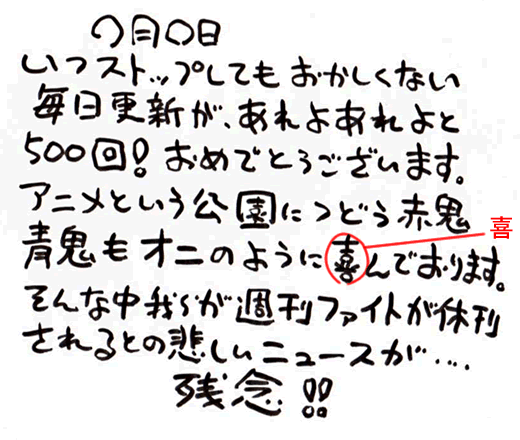 〇月〇日
いつストップしてもおかしくない
毎日更新が、あれよあれよと
500回!おめでとうございます。
アニメという公園につどう赤鬼
青鬼もオニのように喜んでおります。
喜
そんな中我らが週刊ファイトが休刊
されるとの悲しいニュースが‥‥
残念!!